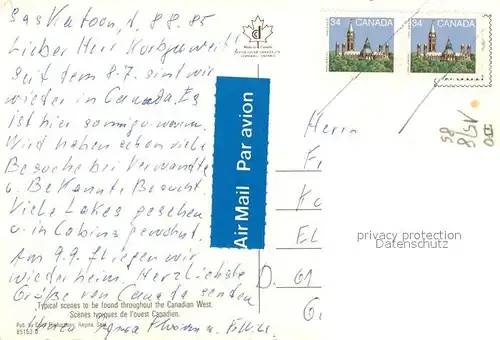 Saskatoon, d. 8.8.85
Lieber Herr
seit dem 8.7. sind wir
wieder in Canada. Es
ist hier sonnig u. warm.
Wir haben schon viele
Besuche bei Verwandte
u. Bekannte Besucht.
Viele Lakes gesehen
u. in Cabins gewohnt.
Am 9.9. fliegen wir
wieder heim. Herzlichste
Grüße von Canada senden
Ihnen
Typical scenes to be found throughout the Canadian West.
Scènes typiques de l'ouest Canadien.
Pub. by Regina, Sask.
85153 D
Made in Canada
Air Mail Par avion
34 CANADA
34 CANADA
Herrn
F
K
EL
D. 61
G
privacy protection
Datenschutz